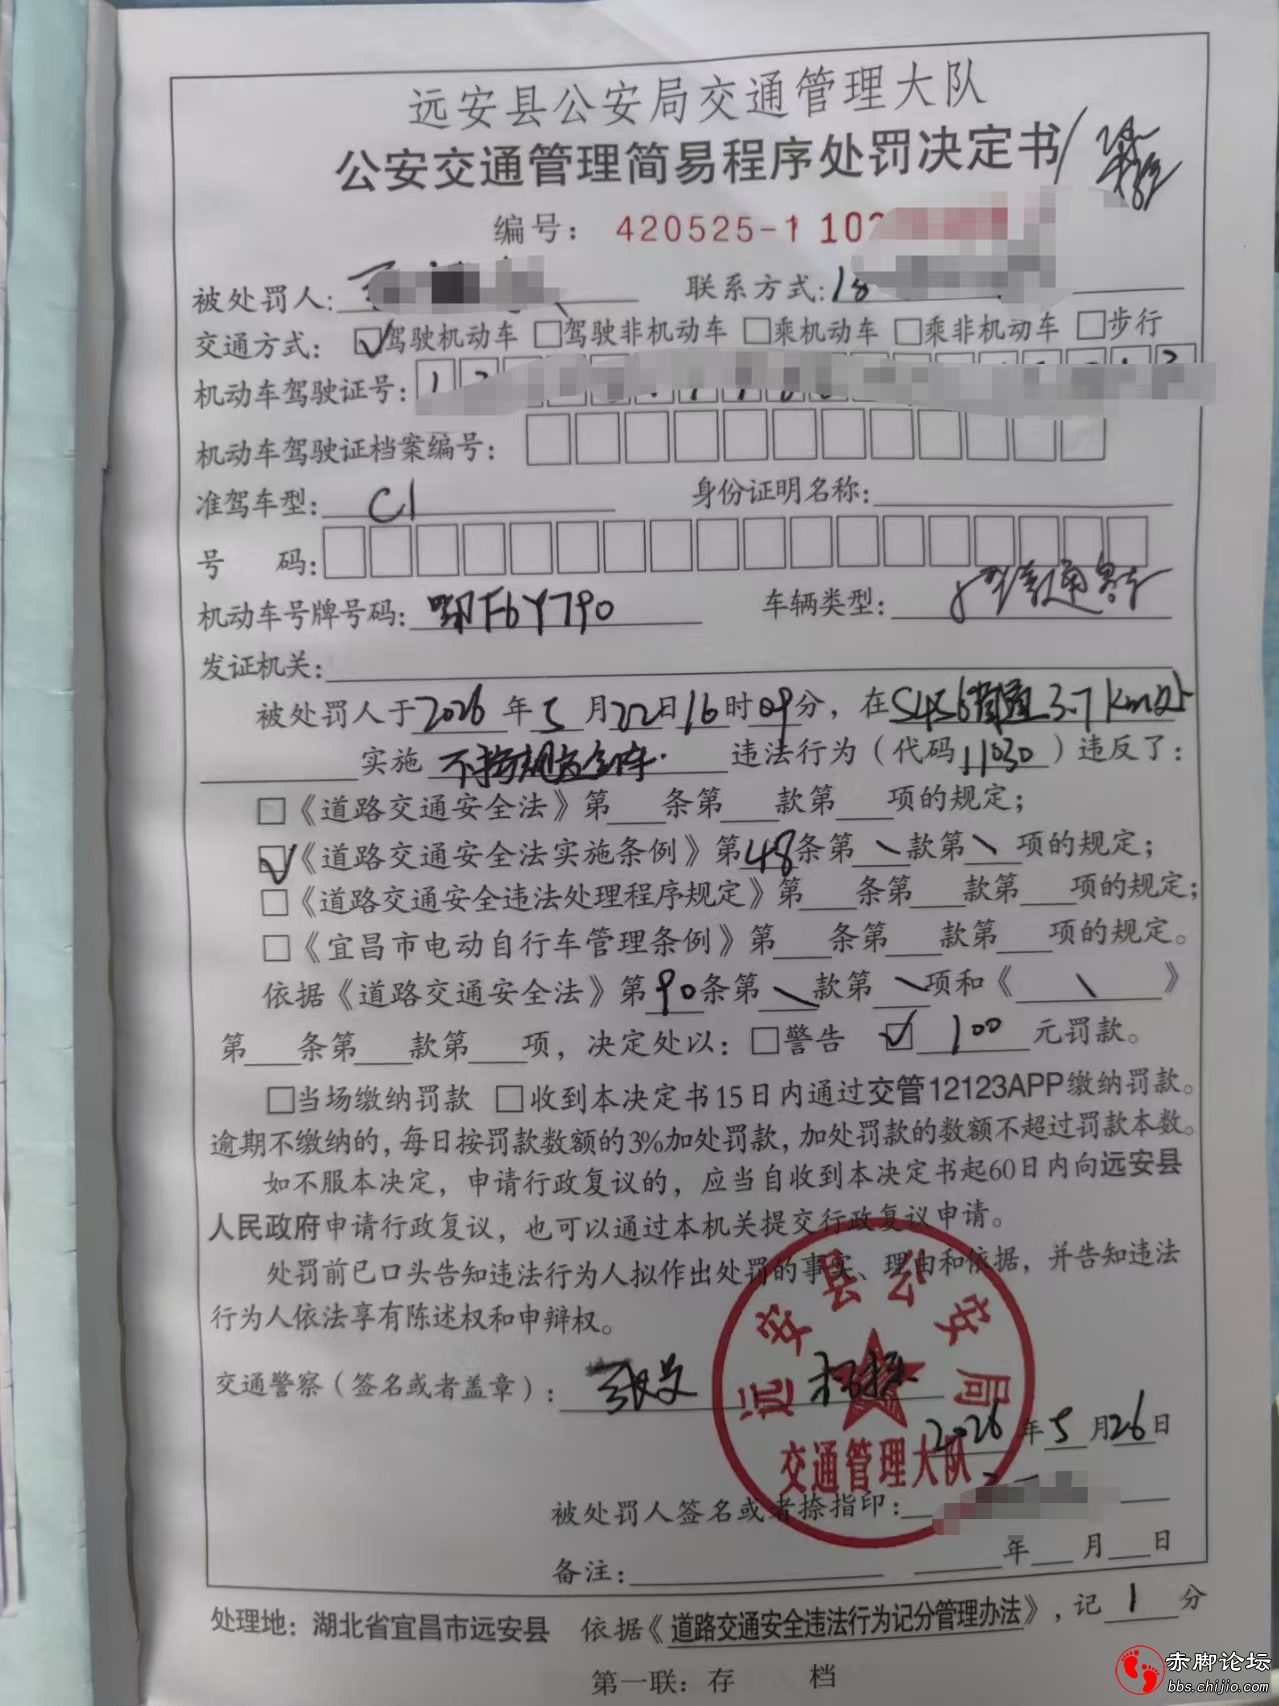 远安县公安局交通管理大队
公安交通管理简易程序处罚决定书
编号: 420525-1 102
被处罚人: 联系方式: 18
交通方式: 驾驶机动车 驾驶非机动车 乘机动车 乘非机动车 步行
机动车驾驶证号: 12
机动车驾驶证档案编号:
准驾车型: C1 身份证明名称:
号 码:
机动车号牌号码: 鄂F6Y790 车辆类型: 小型普通客车
发证机关:
被处罚人于2026年5月22日16时09分, 在S456省道3.7Km处
实施 不按规定会车 违法行为 (代码11030) 违反了:
《道路交通安全法》第 条第 款第 项的规定;
《道路交通安全法实施条例》第48条第\款第\项的规定;
《道路交通安全违法处理程序规定》第 条第 款第 项的规定;
《宜昌市电动自行车管理条例》第 条第 款第 项的规定。
依据《道路交通安全法》第90条第\款第\项和《 \ 》
第 条第 款第 项, 决定处以: 警告 100元罚款。
当场缴纳罚款 收到本决定书15日内通过交管12123APP缴纳罚款。
逾期不缴纳的, 每日按罚款数额的3%加处罚款, 加处罚款的数额不超过罚款本数。
如不服本决定, 申请行政复议的, 应当自收到本决定书起60日内向远安县
人民政府申请行政复议, 也可以通过本机关提交行政复议申请。
处罚前已口头告知违法行为人拟作出处罚的事实、理由和依据, 并告知违法
行为人依法享有陈述权和申辩权。
远安县公安局
交通警察 (签名或者盖章):
2026年5月26日
交通管理大队
被处罚人签名或者捺指印:
备注: 年 月 日
处理地: 湖北省宜昌市远安县 依据《道路交通安全违法行为记分管理办法》, 记1分
第一联: 存 档
赤脚论坛
bbs.chijio.com